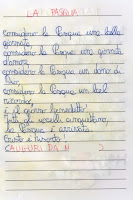 LA PASQUA
considero la Pasqua una bella
giornata
considero la Pasqua una giornata
d'amore,
considero la Pasqua un dono di
Dio,
considero la Pasqua un bel
ricordo,
è il giorno benedetto!
Tutti gli uccelli cinguettano,
la Pasqua è arrivata
AUGURI DA